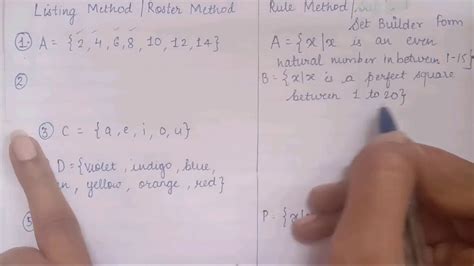 Listing Method / Roster Method
Rule Method /
Set Builder Form
① A = {2, 4, 6, 8, 10, 12, 14}
A = {x/x is an even
natural number in between 1-15}
②
B = {x/x is a perfect square
between 1 to 20}
③ C = {a, e, i, o, u}
D = {violet, indigo, blue,
yellow, orange, red}
P = {x/